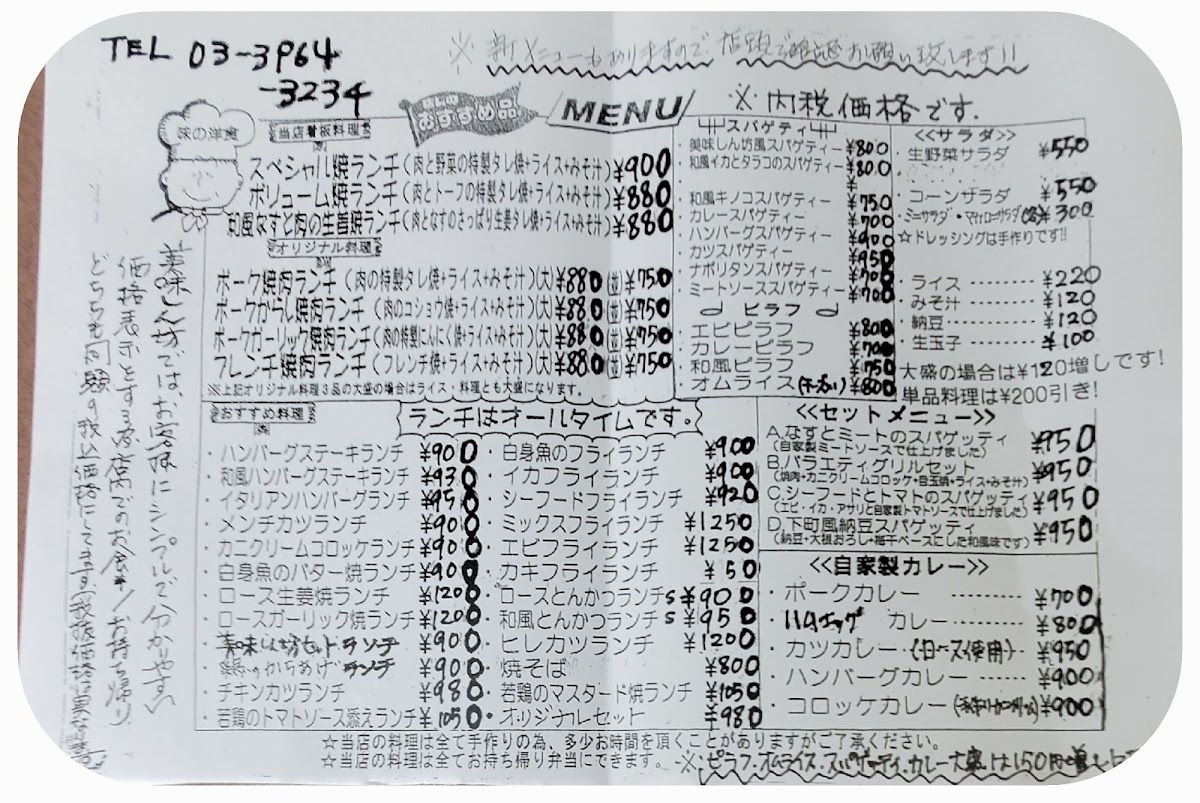 TEL 03-3964
-3234
※新メニューもありますので店頭で確認お願い致します!!
味の洋食
当店看板料理
おすすめ品
MENU
※内税価格です.
スペシャル焼ランチ(肉と野菜の特製タレ焼+ライス+みそ汁)¥900
ボリューム焼ランチ(肉とトーフの特製タレ焼+ライス+みそ汁)¥880
和風なすと肉の生姜焼ランチ(肉となすのさっぱり生姜タレ焼+ライス+みそ汁)¥880
オリジナル料理
ポーク焼肉ランチ(肉の特製タレ焼+ライス+みそ汁)(大)¥880(並)¥750
ポークからし焼肉ランチ(肉のコショウ焼+ライス+みそ汁)(大)¥880(並)¥750
ポークガーリック焼肉ランチ(肉の特製にんにく焼+ライス+みそ汁)(大)¥880(並)¥750
フレンチ焼肉ランチ(フレンチ焼+ライス+みそ汁)(大)¥880(並)¥750
※上記オリジナル料理3品の大盛の場合はライス・料理とも大盛になります。
スパゲティ
美味しん坊風スパゲティー ¥800
和風イカとタラコのスパゲティー ¥800
和風キノコスパゲティー ¥750
カレースパゲティー ¥700
ハンバーグスパゲティー ¥900
カツスパゲティー ¥950
ナポリタンスパゲティー ¥700
ミートソーススパゲティー ¥700
ピラフ
エビピラフ ¥800
カレーピラフ ¥700
和風ピラフ ¥750
オムライス ¥800
<<サラダ>>
生野菜サラダ ¥550
コーンサラダ ¥550
ミニサラダ・マカロニサラダ ¥300
☆ドレッシングは手作りです!!
ライス ¥220
みそ汁 ¥120
納豆 ¥120
生玉子 ¥100
大盛の場合は¥120増しです!
単品料理は¥200引き!
おすすめ料理
ランチはオールタイムです。
・ハンバーグステーキランチ ¥900
・和風ハンバーグステーキランチ ¥930
・イタリアンハンバーグランチ ¥950
・メンチカツランチ ¥900
・カニクリームコロッケランチ ¥900
・白身魚のバター焼ランチ ¥900
・ロース生姜焼ランチ ¥1200
・ロースガーリック焼ランチ ¥1200
・美味しん坊セットランチ ¥900
・からあげランチ ¥900
・チキンカツランチ ¥980
・若鶏のトマトソース添えランチ ¥1050
・白身魚のフライランチ ¥900
・イカフライランチ ¥900
・シーフードフライランチ ¥920
・ミックスフライランチ ¥1250
・エビフライランチ ¥1250
・カキフライランチ ¥ 50
・ロースとんかつランチS ¥900
・和風とんかつランチS ¥950
・ヒレカツランチ ¥1200
・焼そば ¥800
・若鶏のマスタード焼ランチ ¥1050
・オリジナルセット ¥980
<<セットメニュー>>
A.なすとミートのスパゲッティ ¥950
(自家製ミートソースで仕上げました)
B.バラエティグリルセット ¥950
(焼肉・カニクリームコロッケ・目玉焼・ライス・みそ汁)
C.シーフードとトマトのスパゲッティ ¥950
(エビ・イカ・アサリと自家製トマトソースで仕上げました)
D.下町風納豆スパゲッティ ¥950
(納豆・大根おろし・梅干ベースにした和風味です)
<<自家製カレー>>
・ポークカレー ¥700
・ハムエッグ カレー ¥800
・カツカレー(ロース使用) ¥950
・ハンバーグカレー ¥900
・コロッケカレー ¥900
☆当店の料理は全て手作りの為、多少お時間を頂くことがありますがご了承ください。
☆当店の料理は全てお持ち帰り弁当にできます。
※ピラフ.オムライス.スパゲッティ.カレー大盛は150円増し
美味しん坊では、お客様にシンプルで分かりやすい
価格表示とする為、店内でのお食事/お持ち帰り
どちらも同額の税込価格にしてます